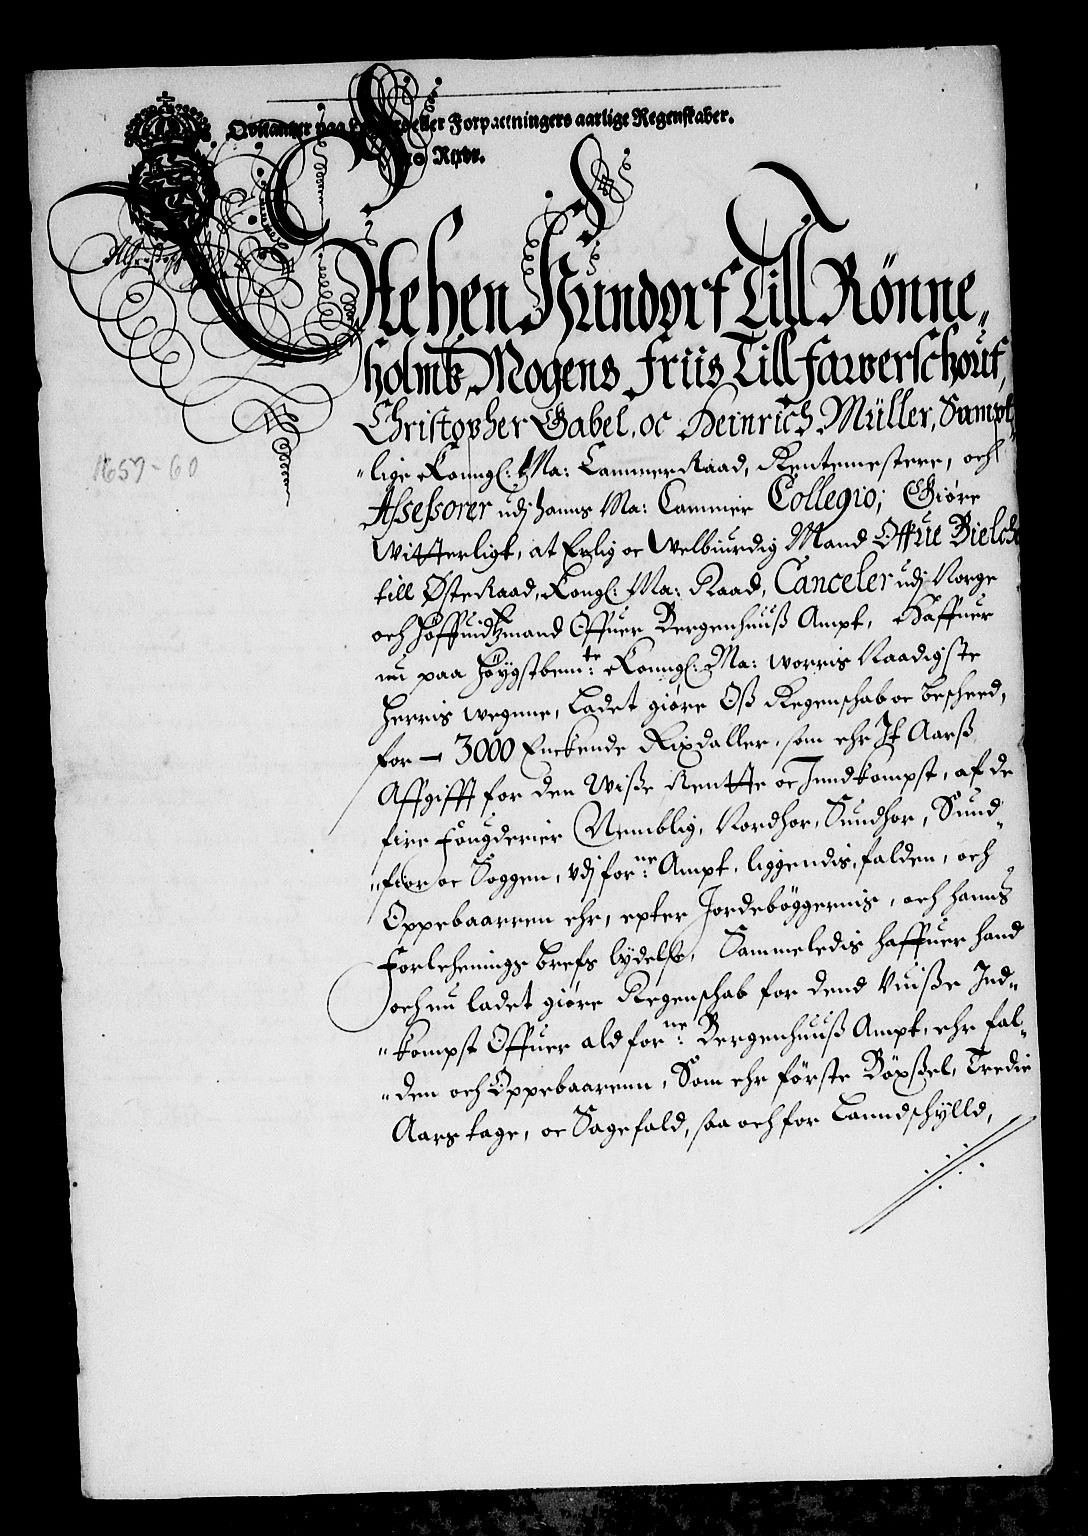 Qvitantzer paa eller Forpactningers aarlige Regenskaber.
Rixdr.
Stehen Hundorf Till Rönne„
holmb Mogens Friis Till Farverschouf,
Christopher Gabel, oc Heinrich Müller, Sampt„
„lige Konngl: Ma: Cammer Raad, Rentemestere, och
Assessorer udj hanns Ma: Cammer Collegio; Giöre
Witterligt, at Erlig oc Welbiurdig Mand Offue Bielcke
till ØsteRaad, Kongl: Ma: Raad, Canceler udj Norge
och Höffuidtzmand Offuer Bergenhuuß Ampt, Haffuer
nu paa Höygstbemte: Konngl: Ma: worris Naadigste
Herris wegnne, Ladet giöre Oß Regenschab oc Bescheed,
for – 3000 Enckende Rixdaller, som ehr It Aarß
Affgifft for den Wiße Rentte oc Inndkompst, af de
fire Fougderier Nemblig, Nordhor, Sundhor, Sund„
„fior oc Soggen, udj forne: Ampt, liggendis, falden, och
Oppebaarren ehr, epter Jordebögernis, och hanns
Forlehnings brefs lydelse, Sammeledis haffuer hand
och nu ladet giöre Regenschab for dend Uuiße Ind„
„kompst Offuer ald forne: Bergenhuuß Ampt, ehr fal„
„den och Oppebaarenn, Som ehr förste Böxßel, Tredie
Aars tage, oc Sagefald, saa och for Lanndschylld,
1659-60